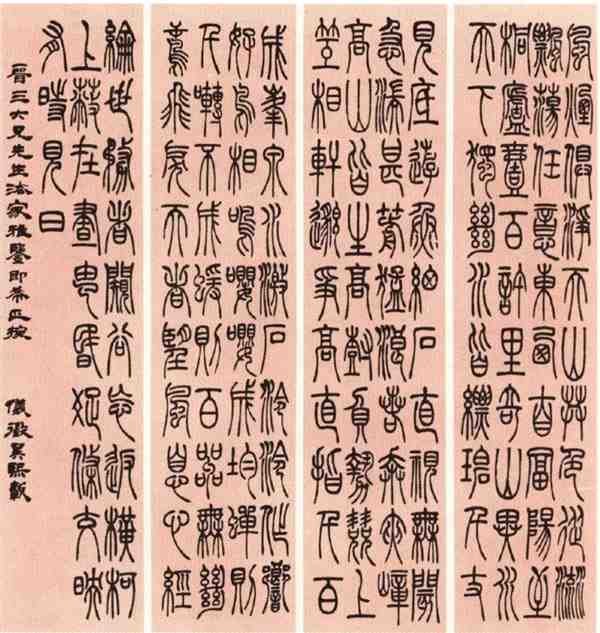 風煙俱淨天山共色從流
飄蕩任意東西自富陽至
桐廬壹百許里奇山異水
天下獨絕水皆縹碧千丈
見底遊魚細石直視無閡
急湍甚箭猛浪若奔夾嶂
高山皆生高樹負勢競上
笠相軒邈爭高直指千百
成峯泉水激石泠泠作響
好鳥相鳴嚶嚶成均蟬則
千轉不成蝯則百嘂無絕
鳶飛戾天者望風息心經
綸世務者闚谷忘返橫柯
上蔽在晝昏疏條交映
有時見日
晉三大兄先生法家雅鑒即希正捥 儀徵吳熙載